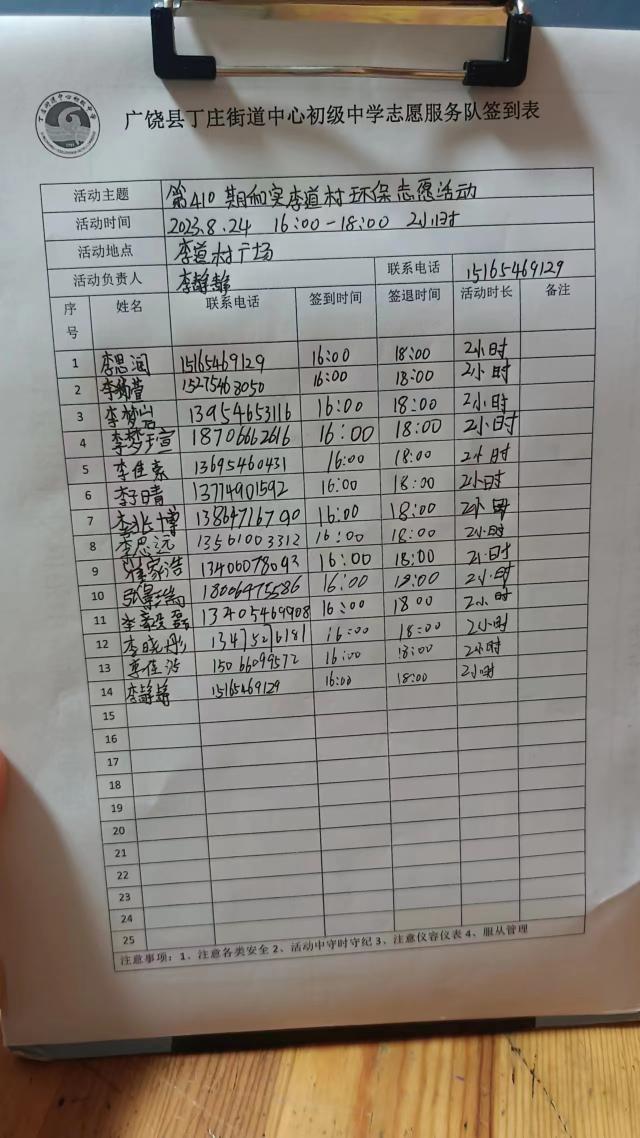 广饶县丁庄街道中心初级中学志愿服务队签到表
活动主题 第410期和实李道村环保志愿活动
活动时间 2023.8.24 16:00-18:00 2小时
活动地点 李道村广场
活动负责人 李静静 联系电话 15165469129
序号 姓名 联系电话 签到时间 签退时间 活动时长 备注
1 李思润 15165469129 16:00 18:00 2小时
2 李 萱 15275468050 16:00 18:00 2小时
3 李梦 13954653116 16:00 18:00 2小时
4 李梦宣 18706662616 16:00 18:00 2小时
5 李佳 13695460431 16:00 18:00 2小时
6 李子晴 13774901592 16:00 18:00 2小时
7 李兆博 13864716790 16:00 18:00 2小时
8 李思远 13561003312 16:00 18:00 2小时
9 家浩 13406078093 16:00 18:00 2小时
10 张 18006475586 16:00 18:00 2小时
11 李 磊 13405469908 16:00 18 00 2小时
12 李晓彤 13475276181 16:00 18:00 2小时
13 李佳 15066099572 16:00 18:00 2小时
14 李静静 15165469129 16:00 18:00 2小时
15
16
17
18
19
20
21
22
23
24
25
注意事项：1、注意各类安全 2、活动中守时守纪 3、注意仪容仪表 4、服从管理